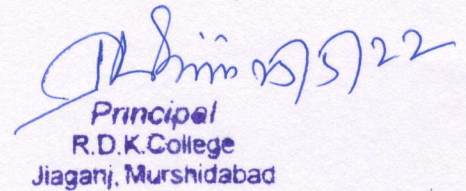 25/5/22
Principal
R.D.K.College
Jiaganj, Murshidabad